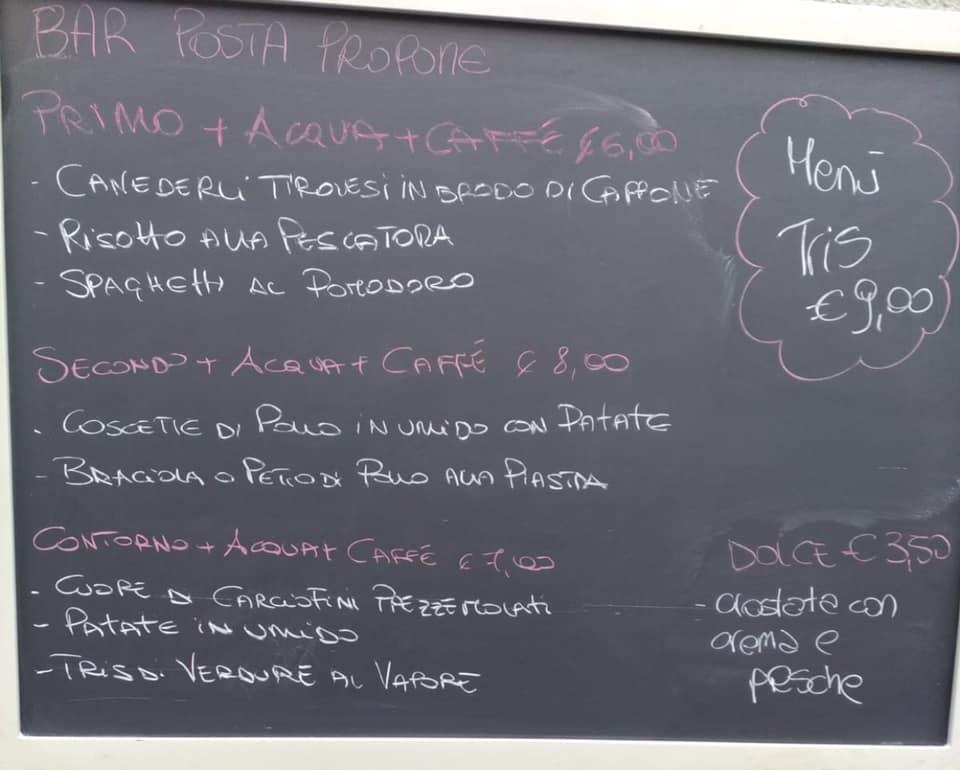 BAR POSTA PROPONE
PRIMO + ACQUA + CAFFÉ € 6,00
- CANEDERLI TIROLESI IN BRODO DI CAPPONE
- RISOTTO ALLA PESCATORA
- SPAGHETTI AL POMODORO
Menù
Tris
€ 9,00
SECONDO + ACQUA + CAFFÉ € 8,00
- COSCETTE DI POLLO IN UMIDO CON PATATE
- BRACIOLA O PETTO DI POLLO ALLA PIASTRA
CONTORNO + ACQUA + CAFFÉ € 7,00
- CUORE DI CARCIOFINI PREZZEMOLATI
- PATATE IN UMIDO
- TRIS DI VERDURE AL VAPORE
DOLCE € 3,50
- crostate con
crema e
pesche